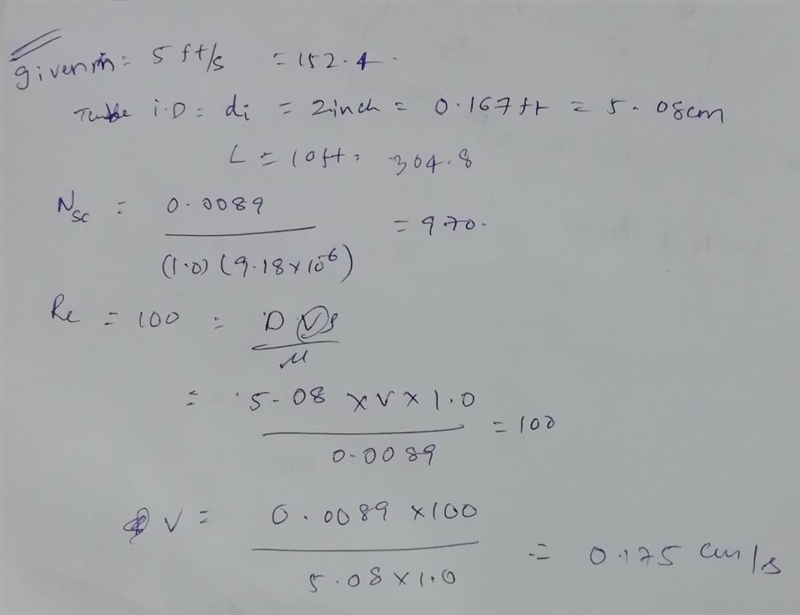 given m = 5 ft/s = 152.4.
Tube i.D = di = 2inch = 0.167ft = 5.08cm
L = 10ft = 304.8
Nsc = 0.0089 / (1.0)(9.18×10^-6) = 970.
Re = 100 = DVρ / μ
= 5.08 × V × 1.0 / 0.0089 = 100
V = 0.0089 × 100 / 5.08 × 1.0 = 0.175 cm/s